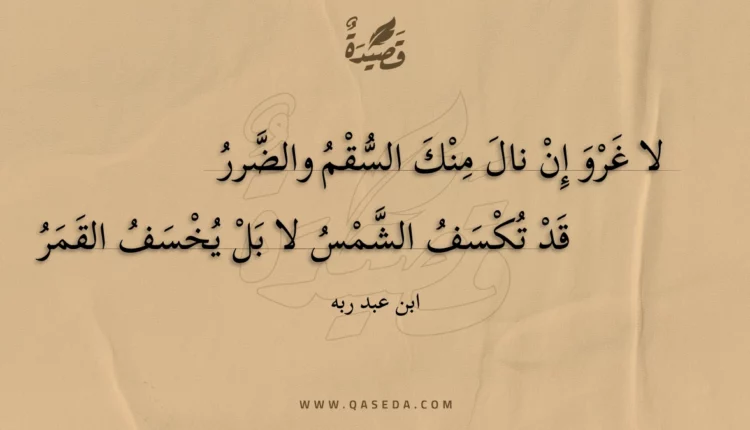 قَصِيْدَةٌ
لا غَرْوَ إِنْ نالَ مِنْكَ السُّقْمُ والضَّررُ
قَدْ تُكْسَفُ الشَّمْسُ لا بَلْ يُخْسَفُ القَمَرُ
ابن عبد ربه
WWW.QASEDA.COM